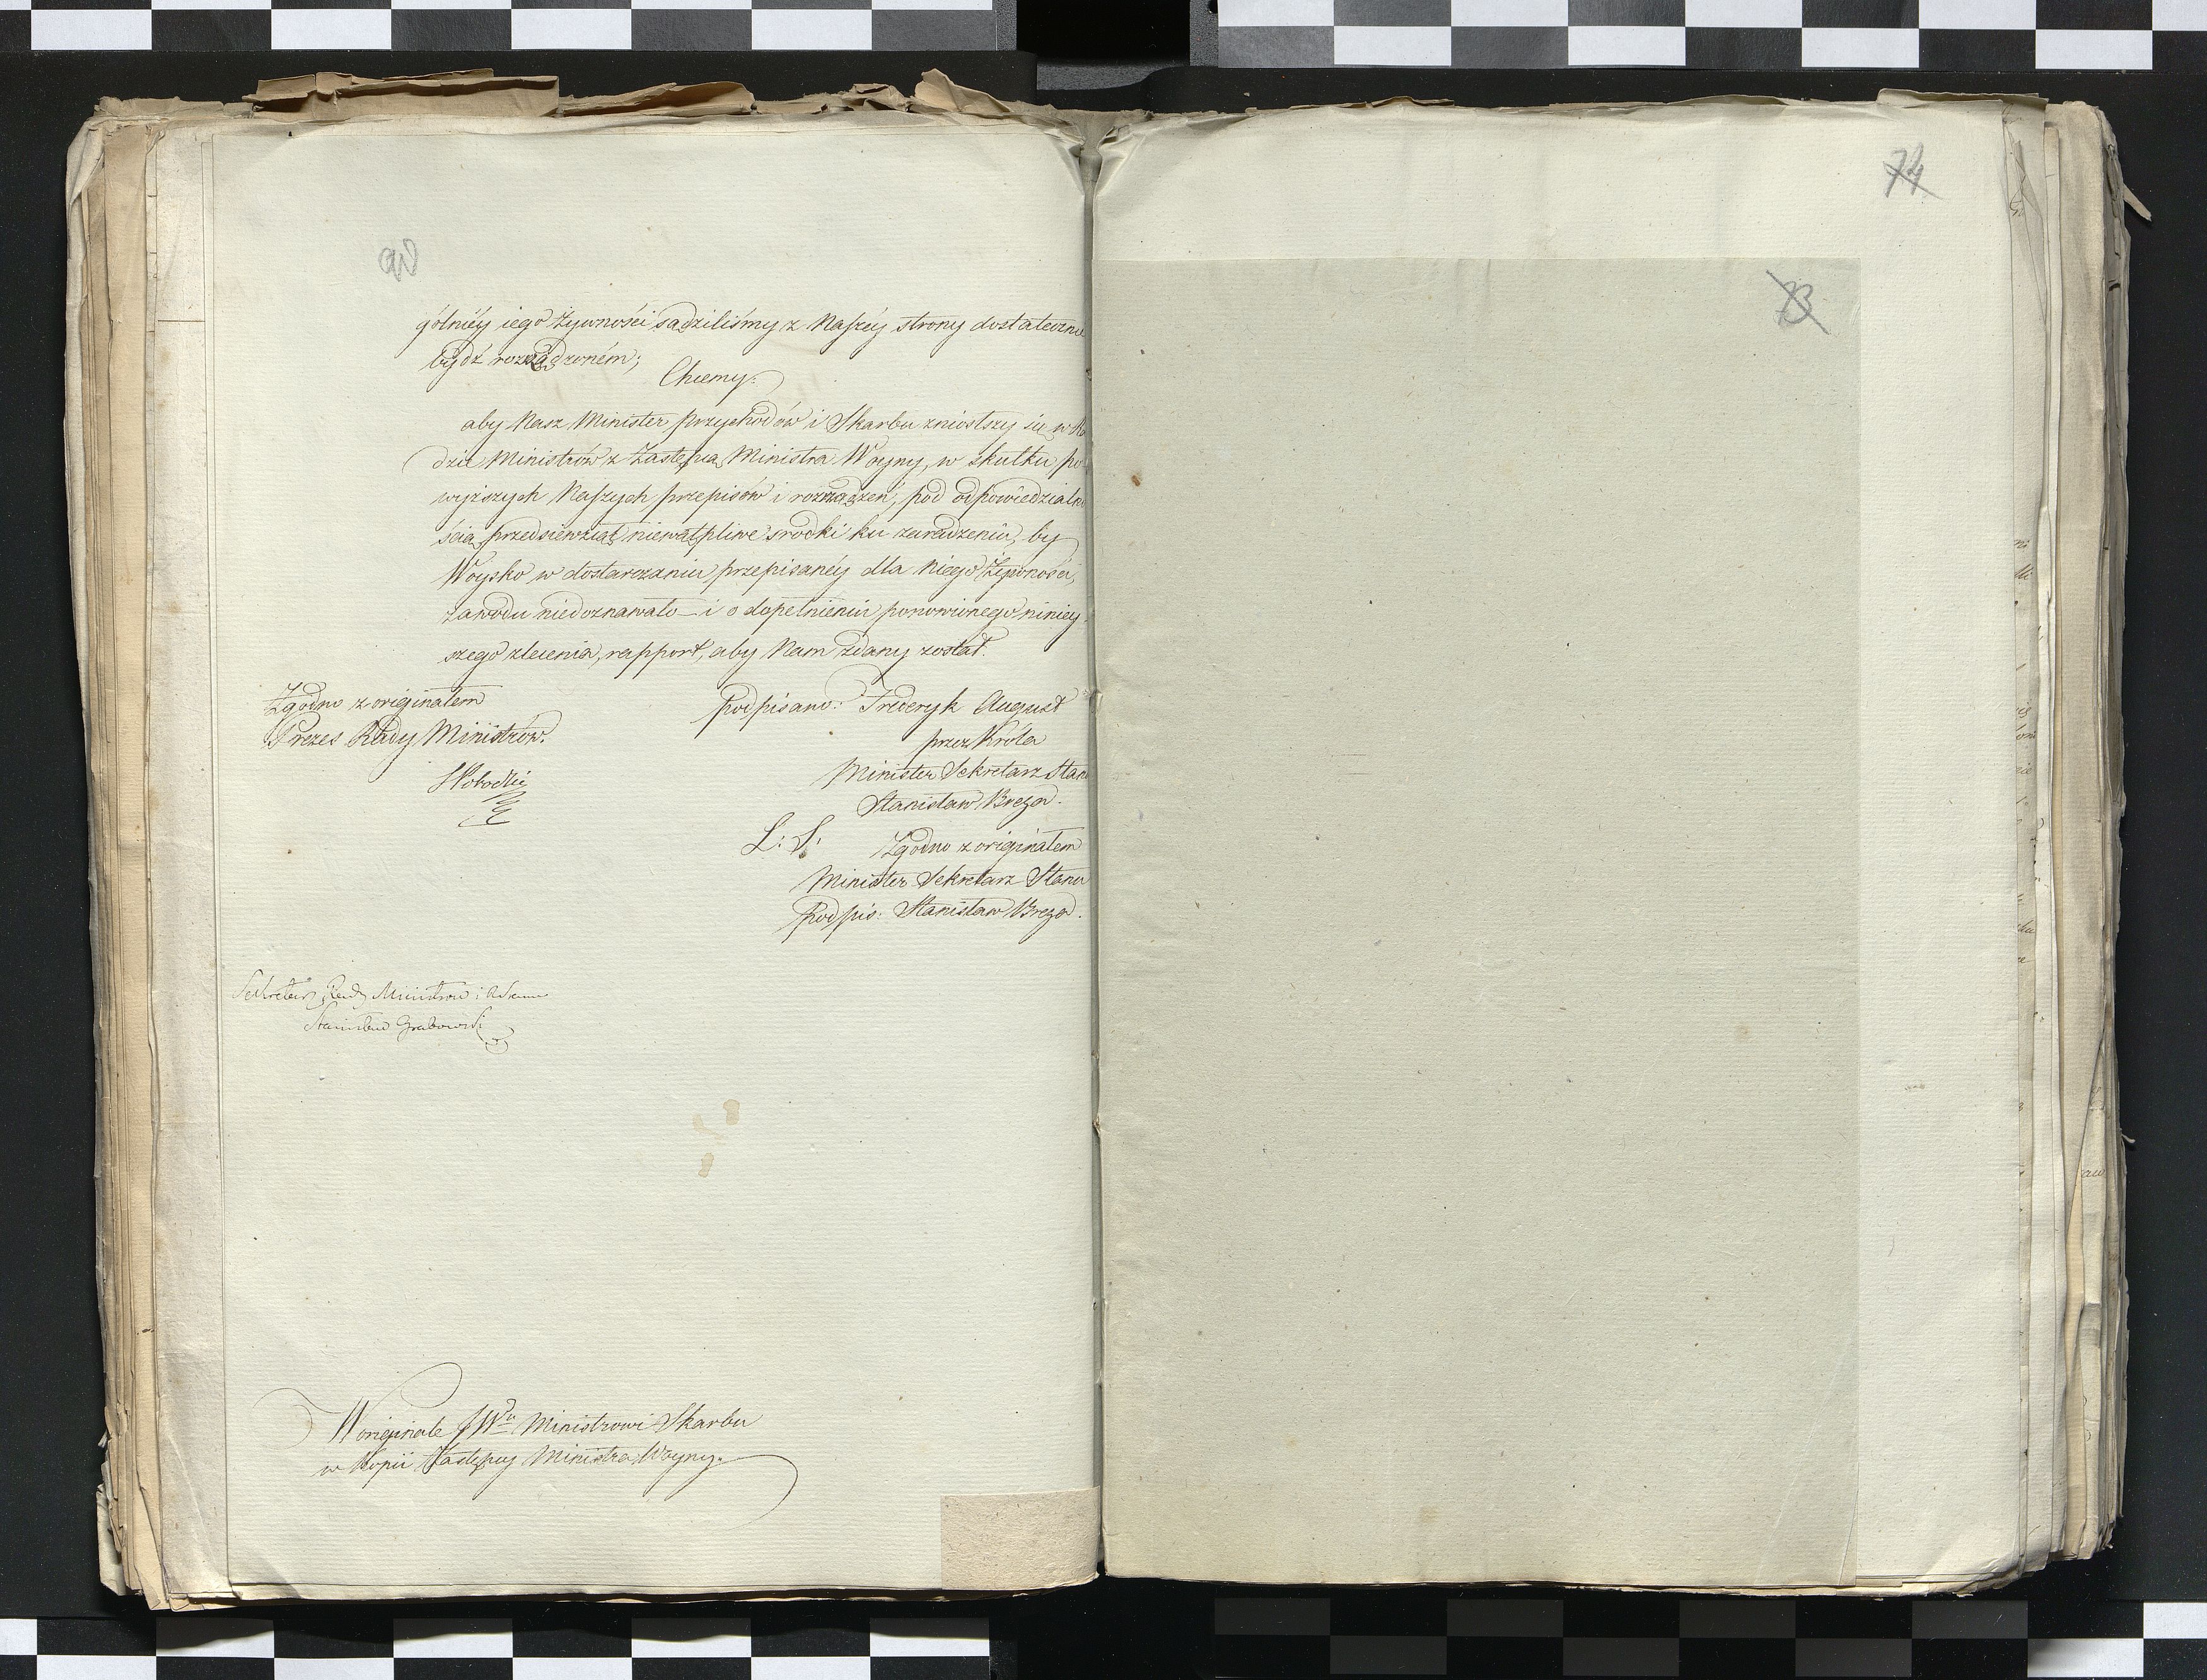 90
gólnéy iego żywności sądziliśmy z Naszéy strony dostateczne
bydź rozrządzoném;
Chcemy:
aby Nasz Minister przychodów i Skarbu zniosłszy się w Ra
dzie Ministrów z Zastępcą Ministra Woyny, w skutku po
wyższych Naszych przepisów i rozrządzeń, pod odpowiedzialno
ścią przedsięwziął niewątpliwe srodki ku zaradzeniu, by
Woysko w dostarczaniu przepisanéy dla niego Żywności,
zawodu niedoznawało - i o dopełnieniu ponowionego niniey
szego zlecenia, rapport, aby Nam zdany został.
Zgodno z originałem
Prezes Rady Ministrów.
podpisano: Frideryk August
przez Króla
Minister Sekretarz Stanu
Stanisław Breza.
L: S.
Zgodno z originałem
Minister Sekretarz Stanu
Podpis: Stanisław Breza.
Sekretarz Rady Ministrow i
Stanisław Grabowski
W originale JWu Ministrowi Skarbu
w Kopii Zastępcy Ministra Woyny.
74
73